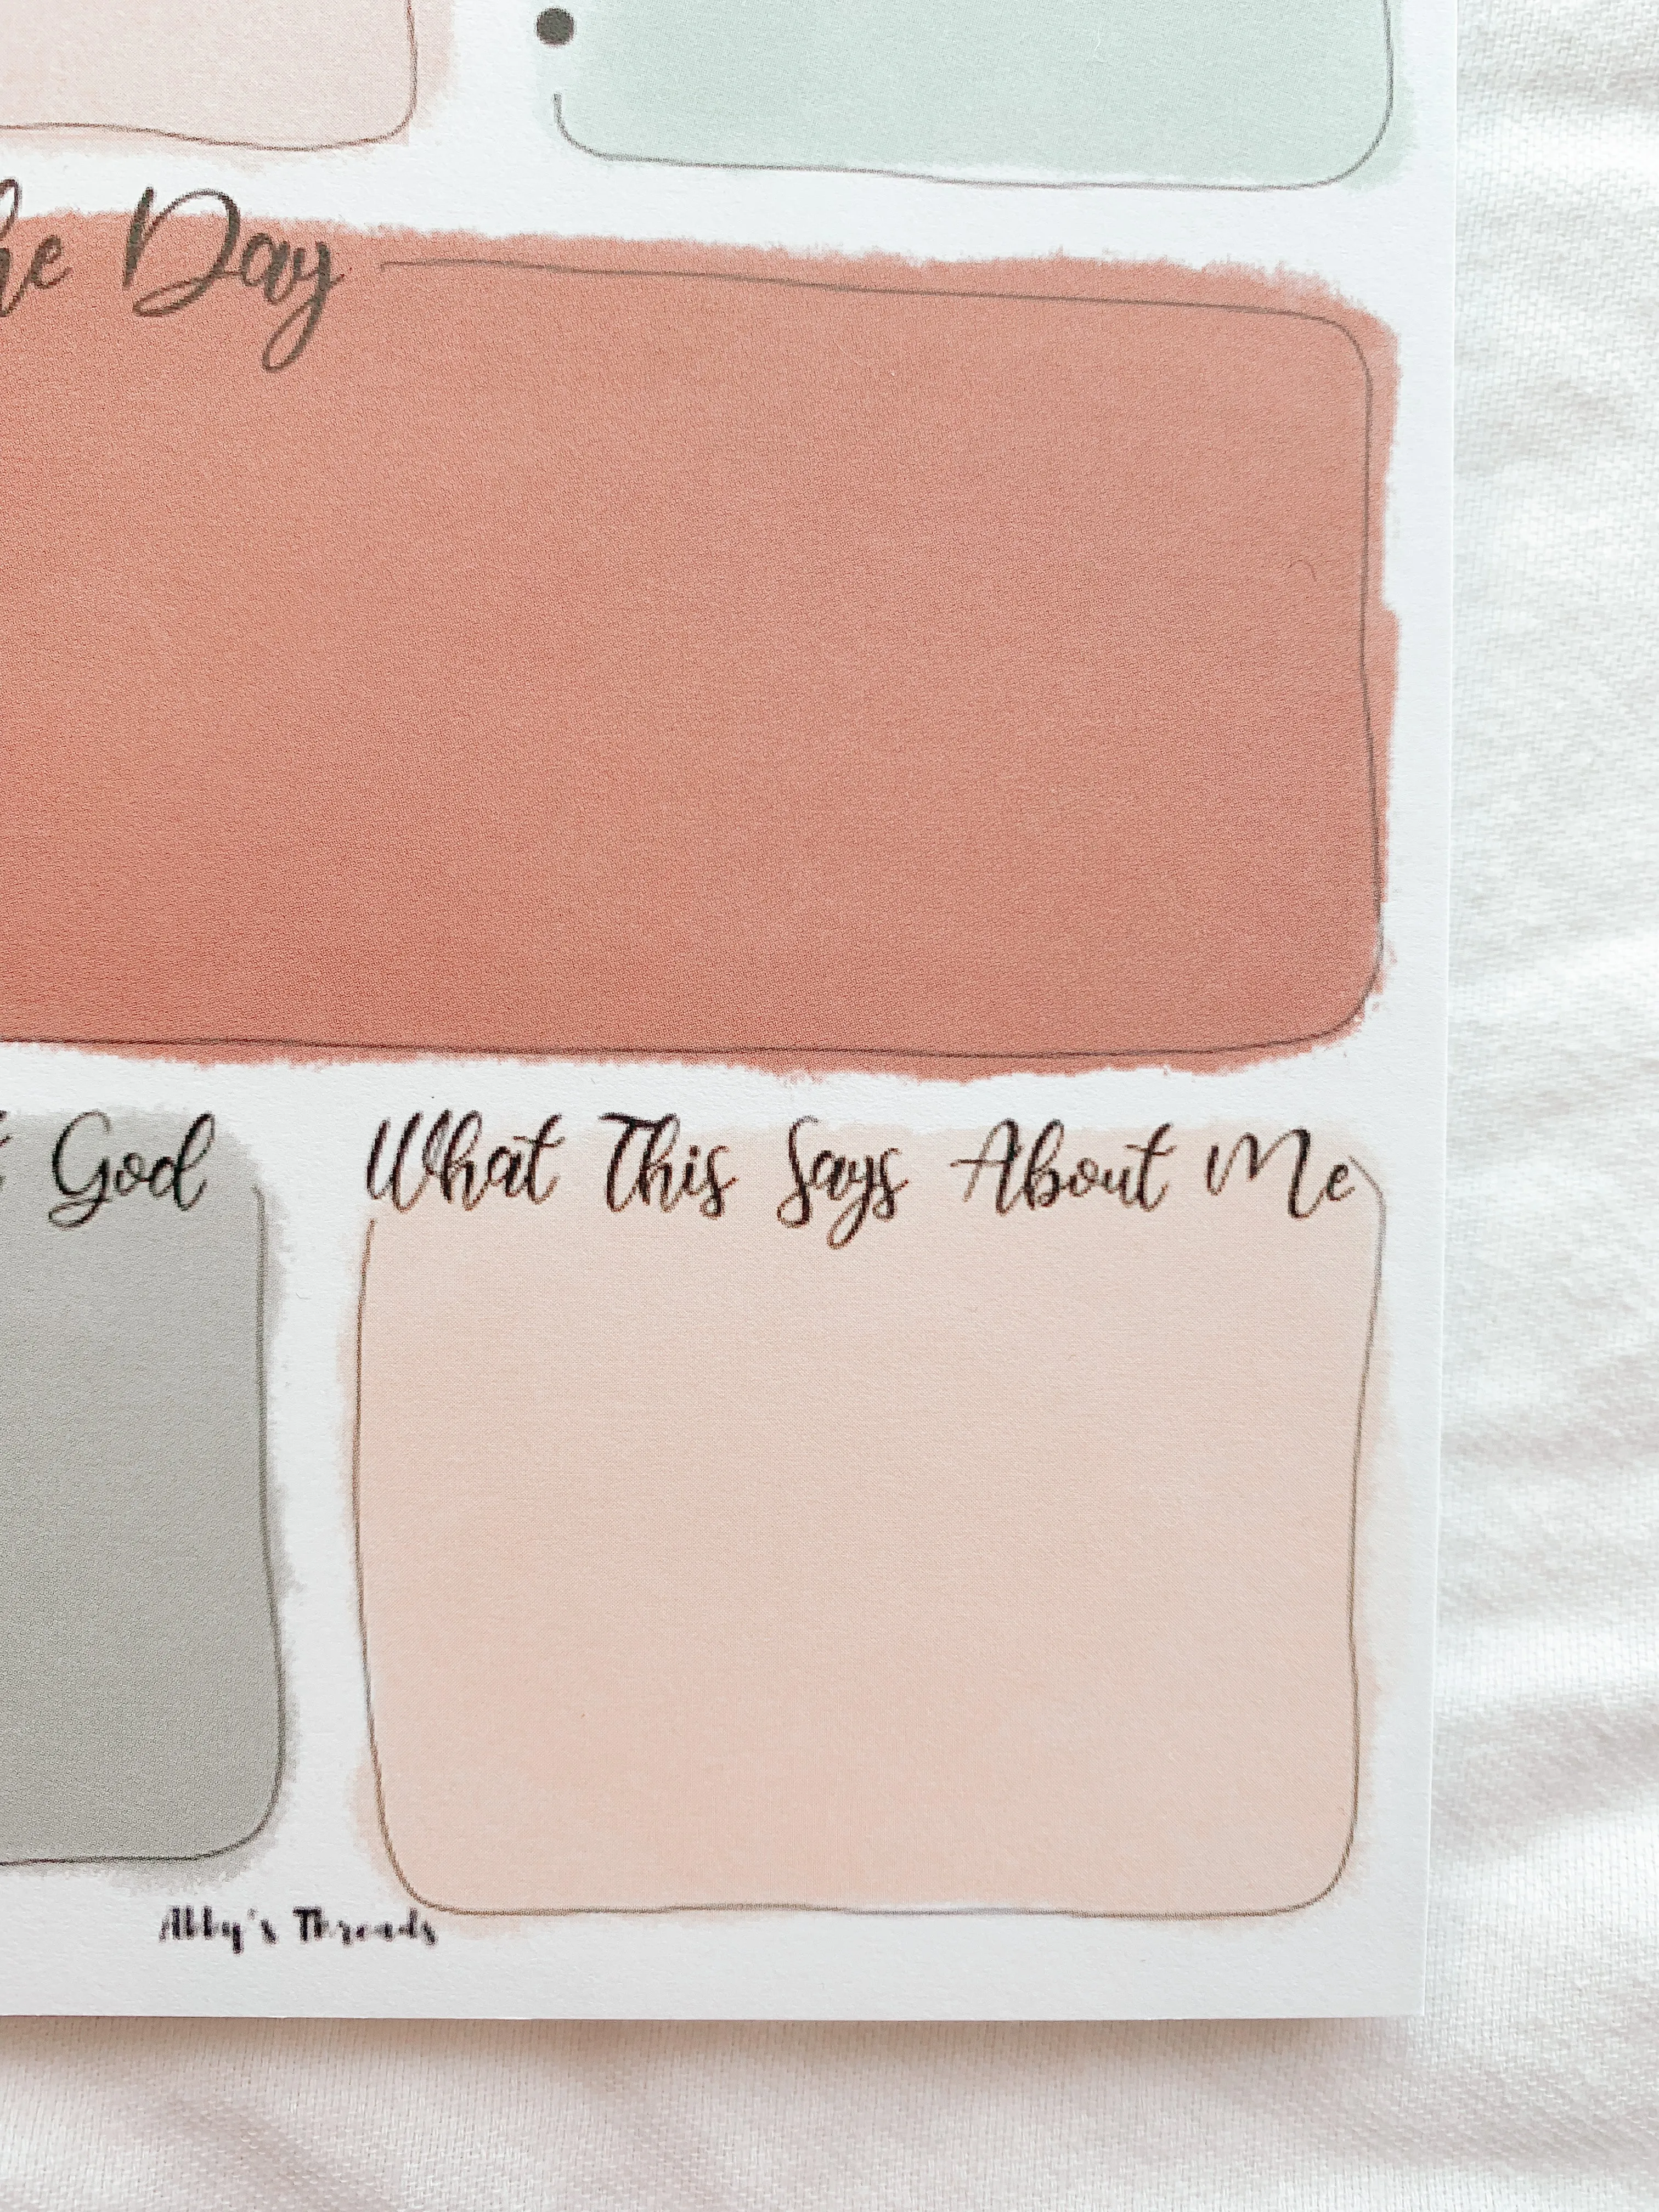 he Day
God
What This Says About Me
Abby's Threads